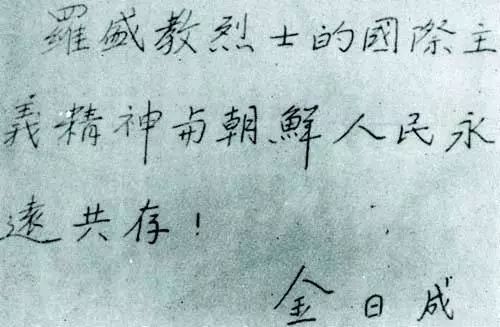 羅盛教烈士的國際主
義精神与朝鮮人民永
遠共存！
金日成